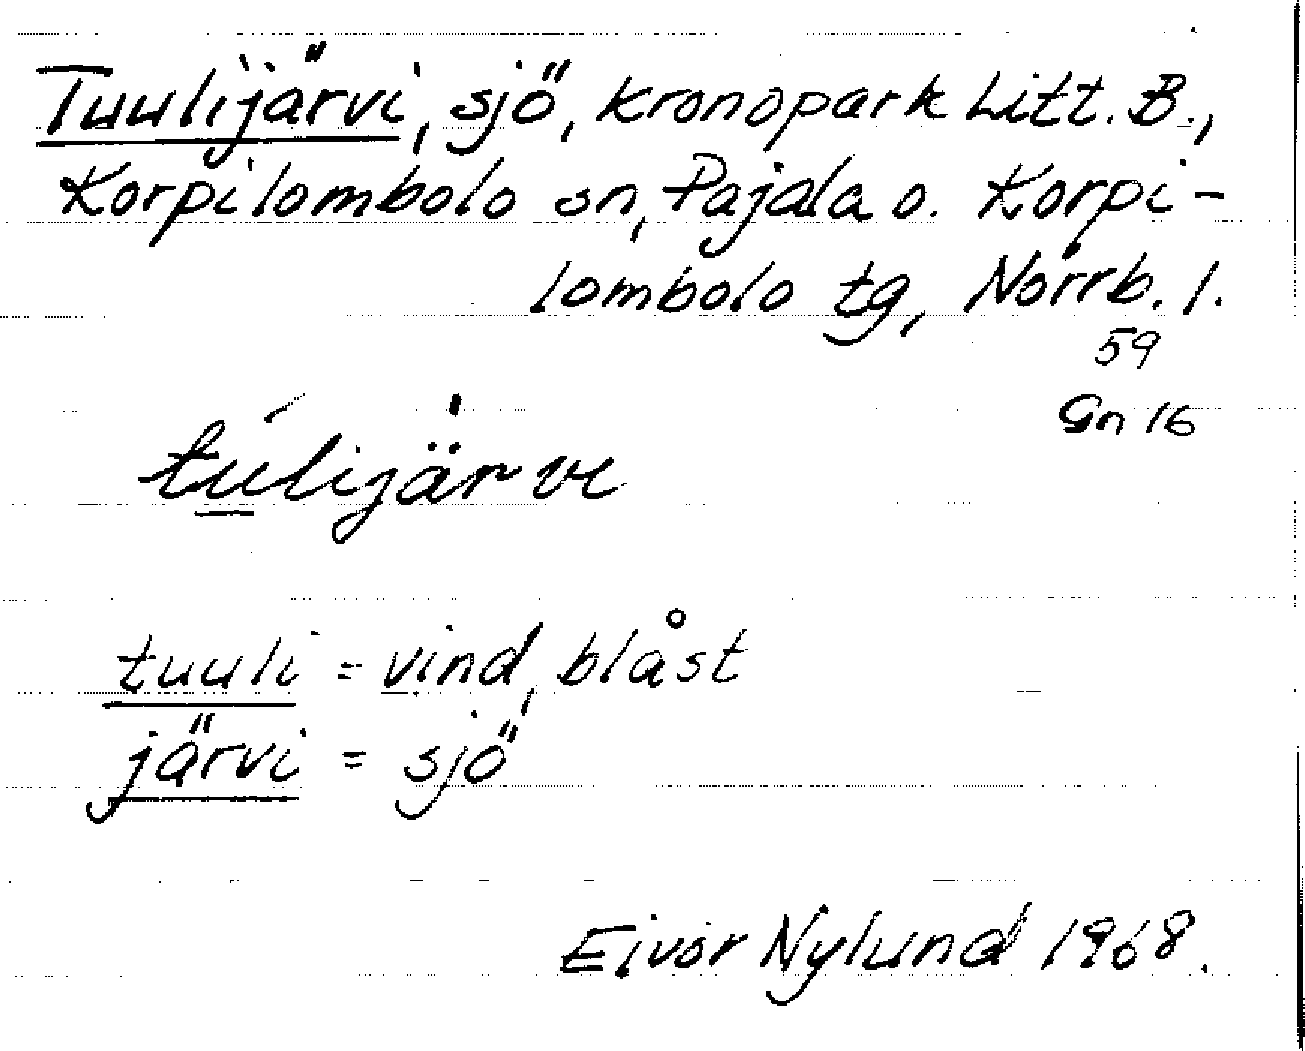 Tuulijärvi, sjö, kronopark Litt. B.,
Korpilombolo sn, Pajala o. Korpi-
lombolo tg, Norrb. l.
59
Gn 16
túlijärvi
tuuli = vind, blåst
järvi = sjö
Eivor Nylund 1968.